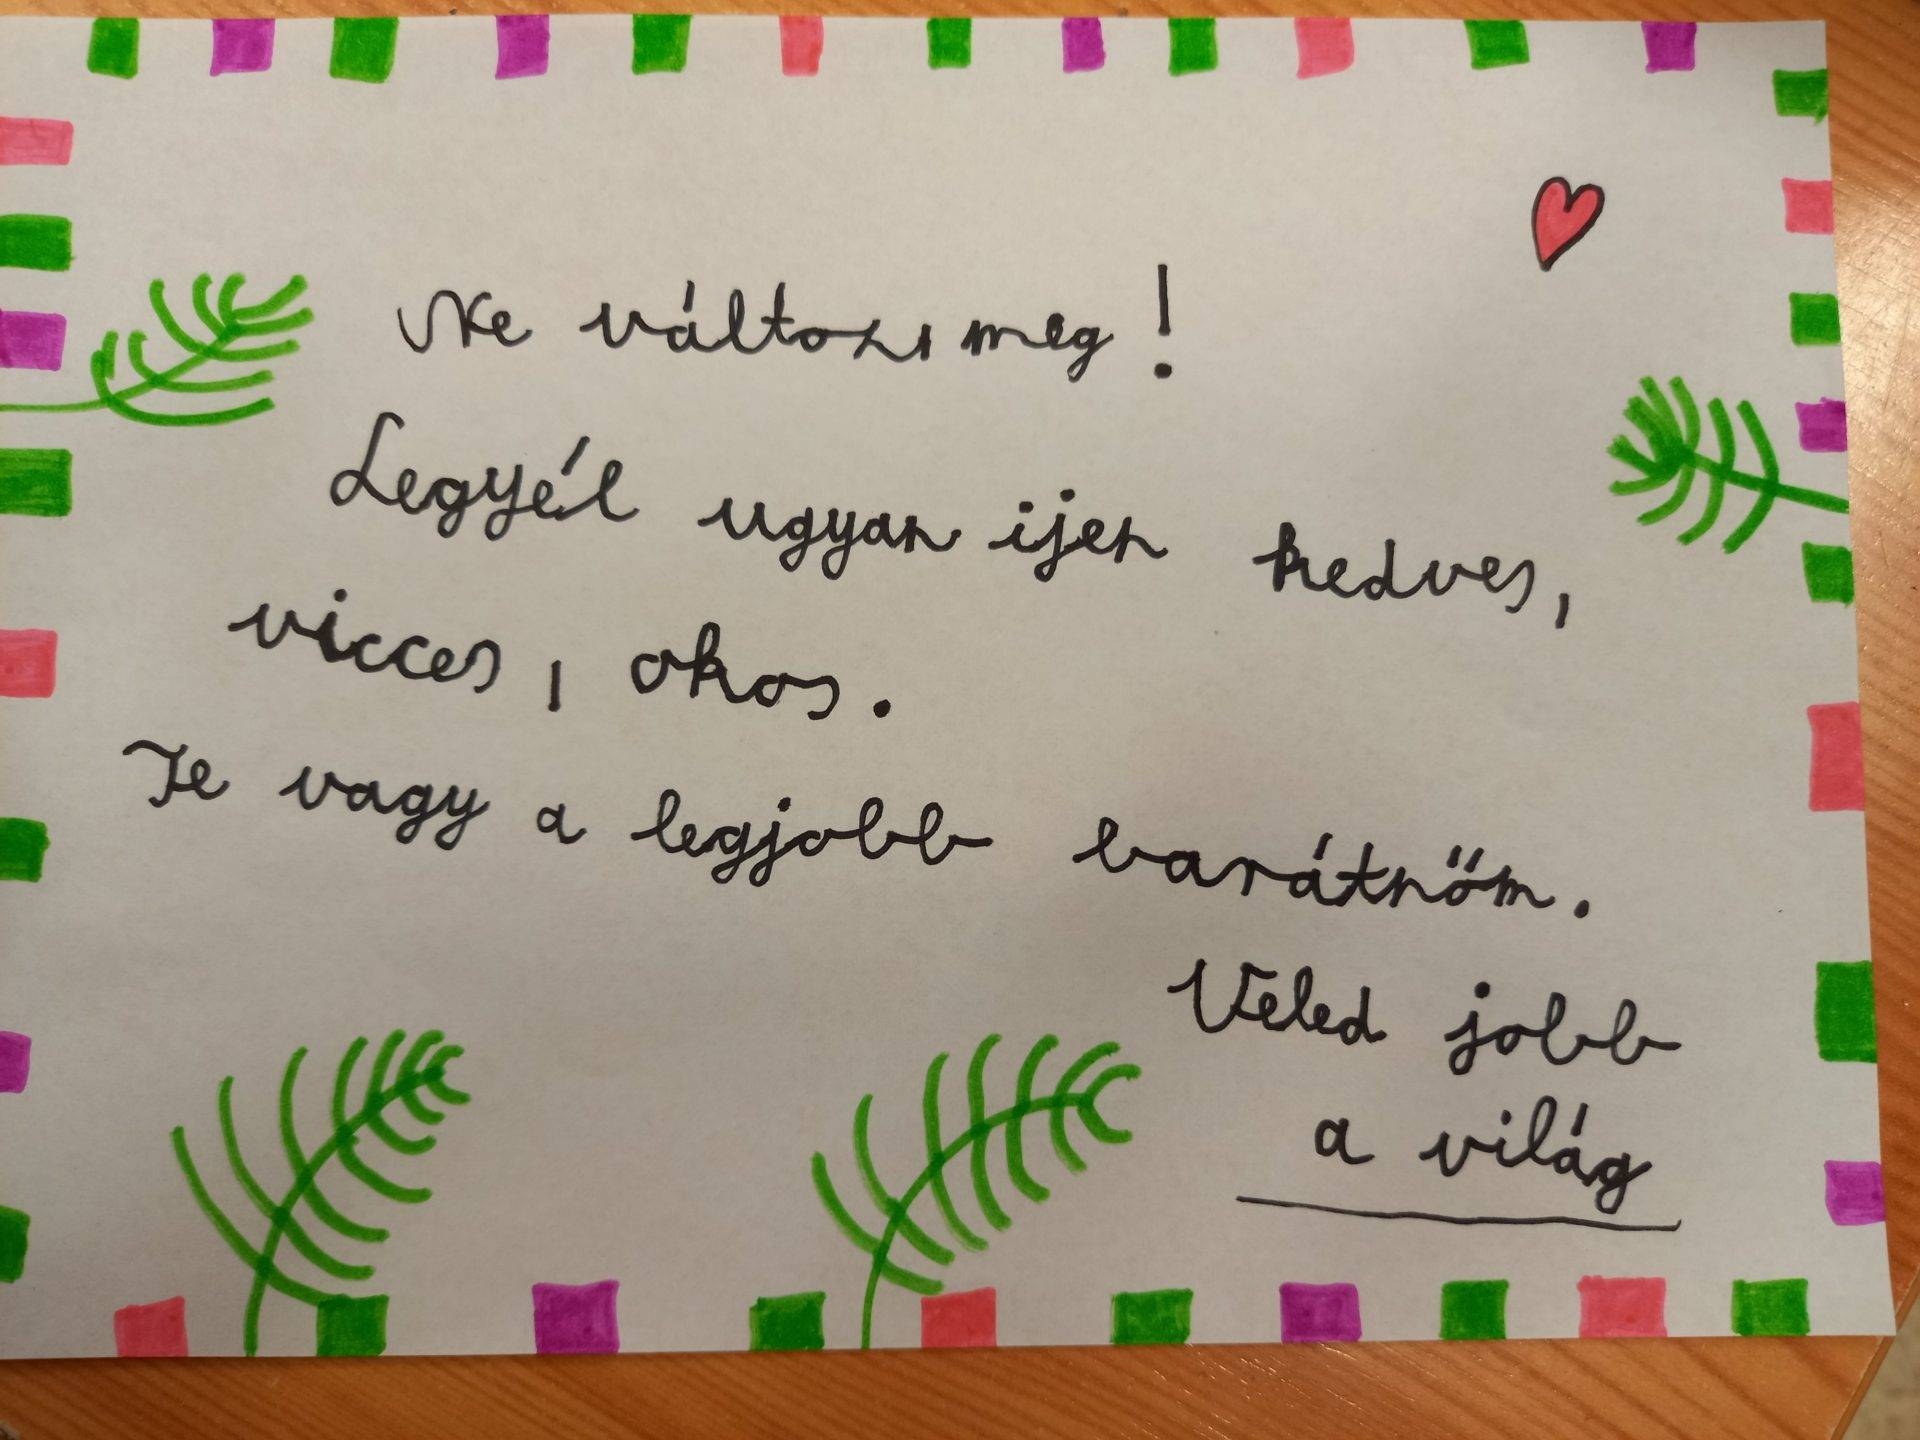 Ne változz meg!
Legyél ugyan ijen kedves,
vicces, okos.
Te vagy a legjobb barátnőm.
Veled jobb
a világ